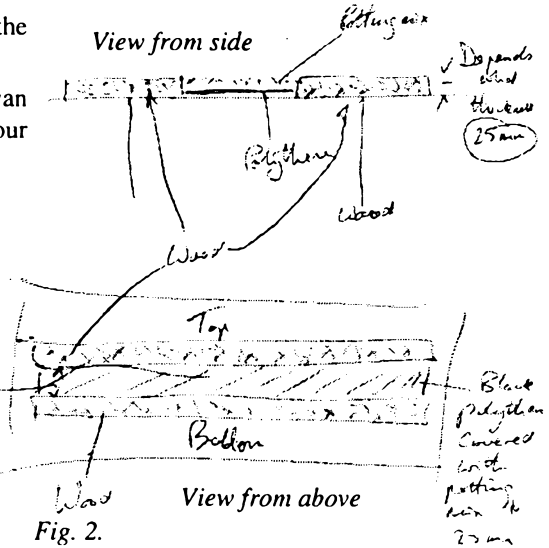 the
View from side
Potting mix
an
our
Depends
what
thickness
25 mm
Polythene
Wood
Wood
Top
Black
polythene
Covered
with
potting
mix to
25 mm
Bottom
Wood
View from above
Fig. 2.